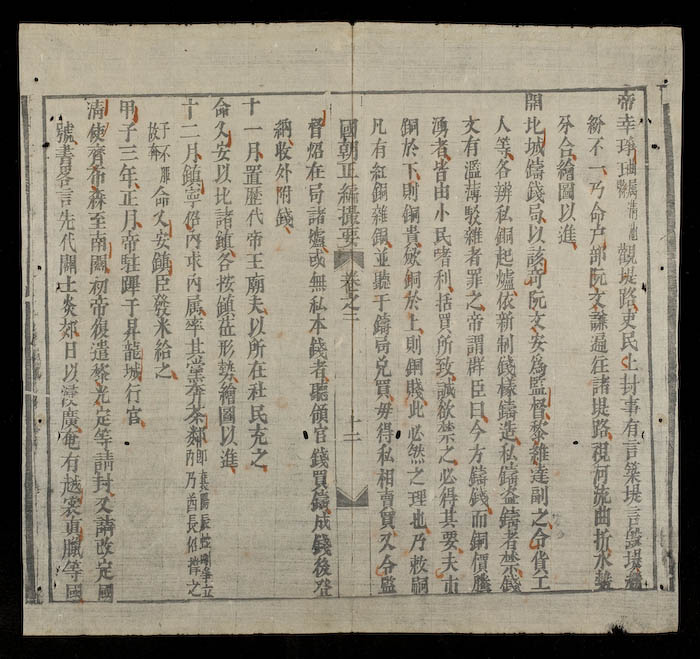 帝幸珥河觀堤路吏民上封事有言築堤言毀堤
紛不一乃命戶部阮文謙遍往諸堤路視河流曲折水勢
分合繪圖以進
開北城鑄錢局以該奇阮文安爲監督黎維達副之令貨工
人等各辨私銅起爐依新制錢樣鑄造私鑄盜鑄者禁錢
文有濫薄駁雜者罪之帝謂群臣曰今方鑄錢而銅價騰
湧者皆由小民嗜利括買所致誠欲禁之必得其要夫市
銅於下則銅貴斂銅於上則銅賤此必然之理也乃敕嗣
凡有紅銅雜銀並聽于鑄局兌買毋得私相賣買又令監
國朝正編撮要 卷之三 十二
督炤在局諸爐或無私本錢者聽領官錢買鑄成錢後登
納收外附錢
十一月置歷代帝王廟夫以所在社民充之
命久安以北諸鎮各按鎮莅形勢繪圖以進
十二月鎮寧伯內求內屬率其黨奔茶鄰卽襄陽內乃酋長招捋之
于不羅故奔命乂安鎮臣發米給之
甲子三年正月帝駐蹕于昇龍城行宮
清使齊布森至南關初帝復遣黎光定等請封又請改定國
號書畧言先代闢土炎郊日以浸廣奄有越裳眞臘等國